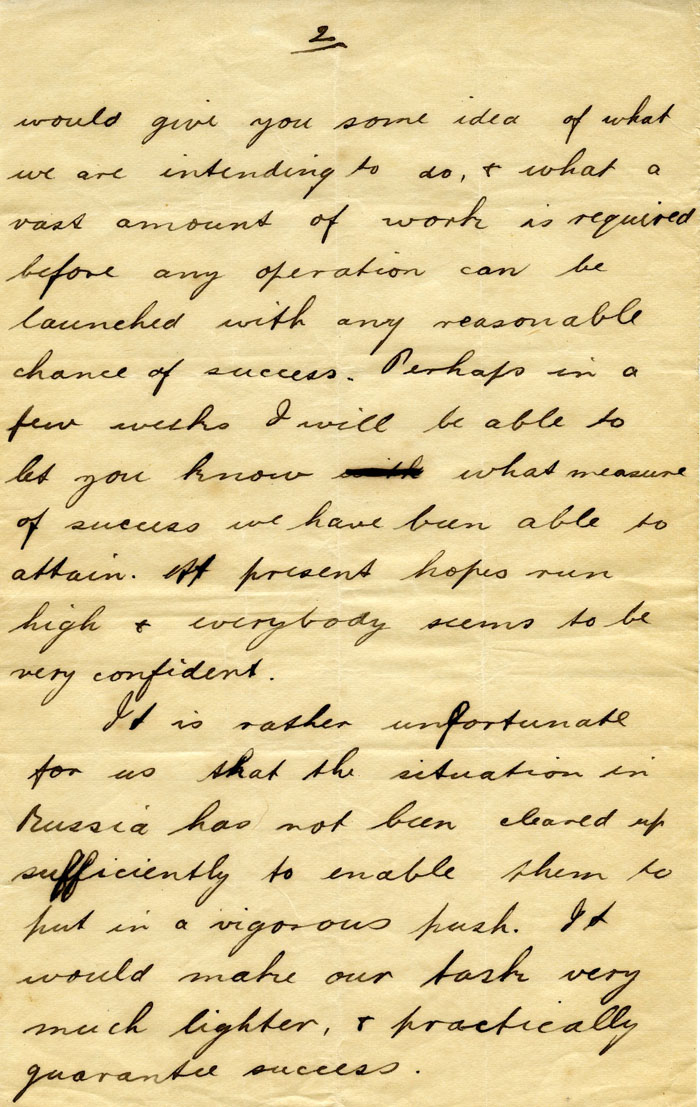 2
would give you some idea of what
we are intending to do, & what a
vast amount of work is required
before any operation can be
launched with any reasonable
chance of success. Perhaps in a
few weeks I will be able to
let you know with what measure
of success we have been able to
attain. At present hopes run
high & everybody seems to be
very confident.
It is rather unfortunate
for us that the situation in
Russia has not been cleared up
sufficiently to enable them to
put in a vigorous push. It
would make our task very
much lighter, & practically
guarantee success.